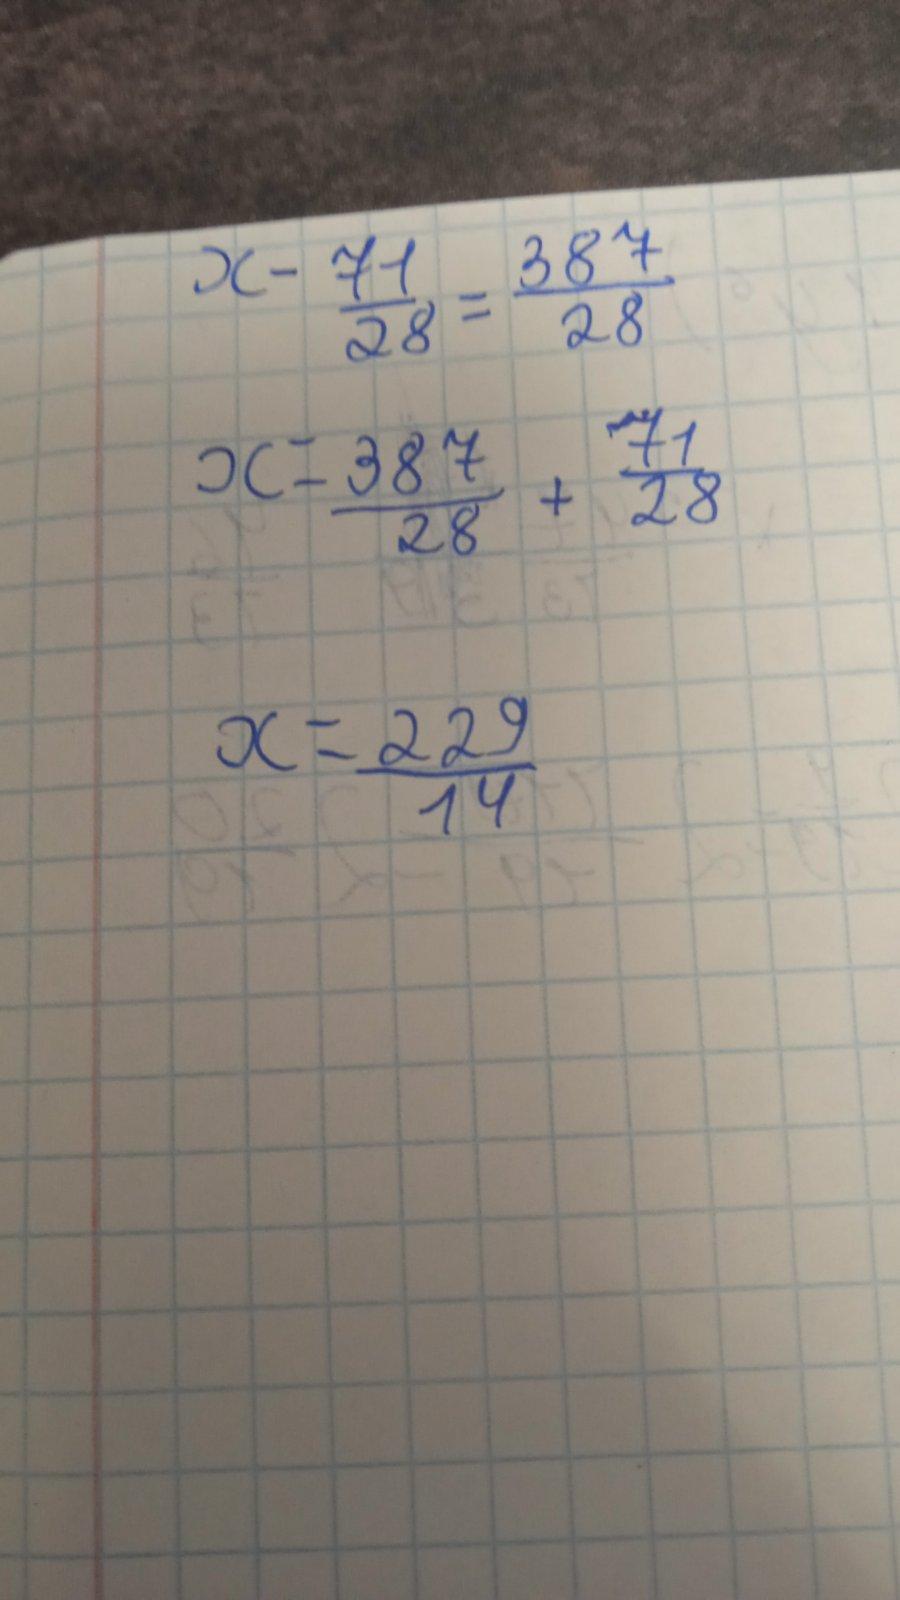 x - 71/28 = 387/28
x = 387/28 + 71/28
x = 229/14